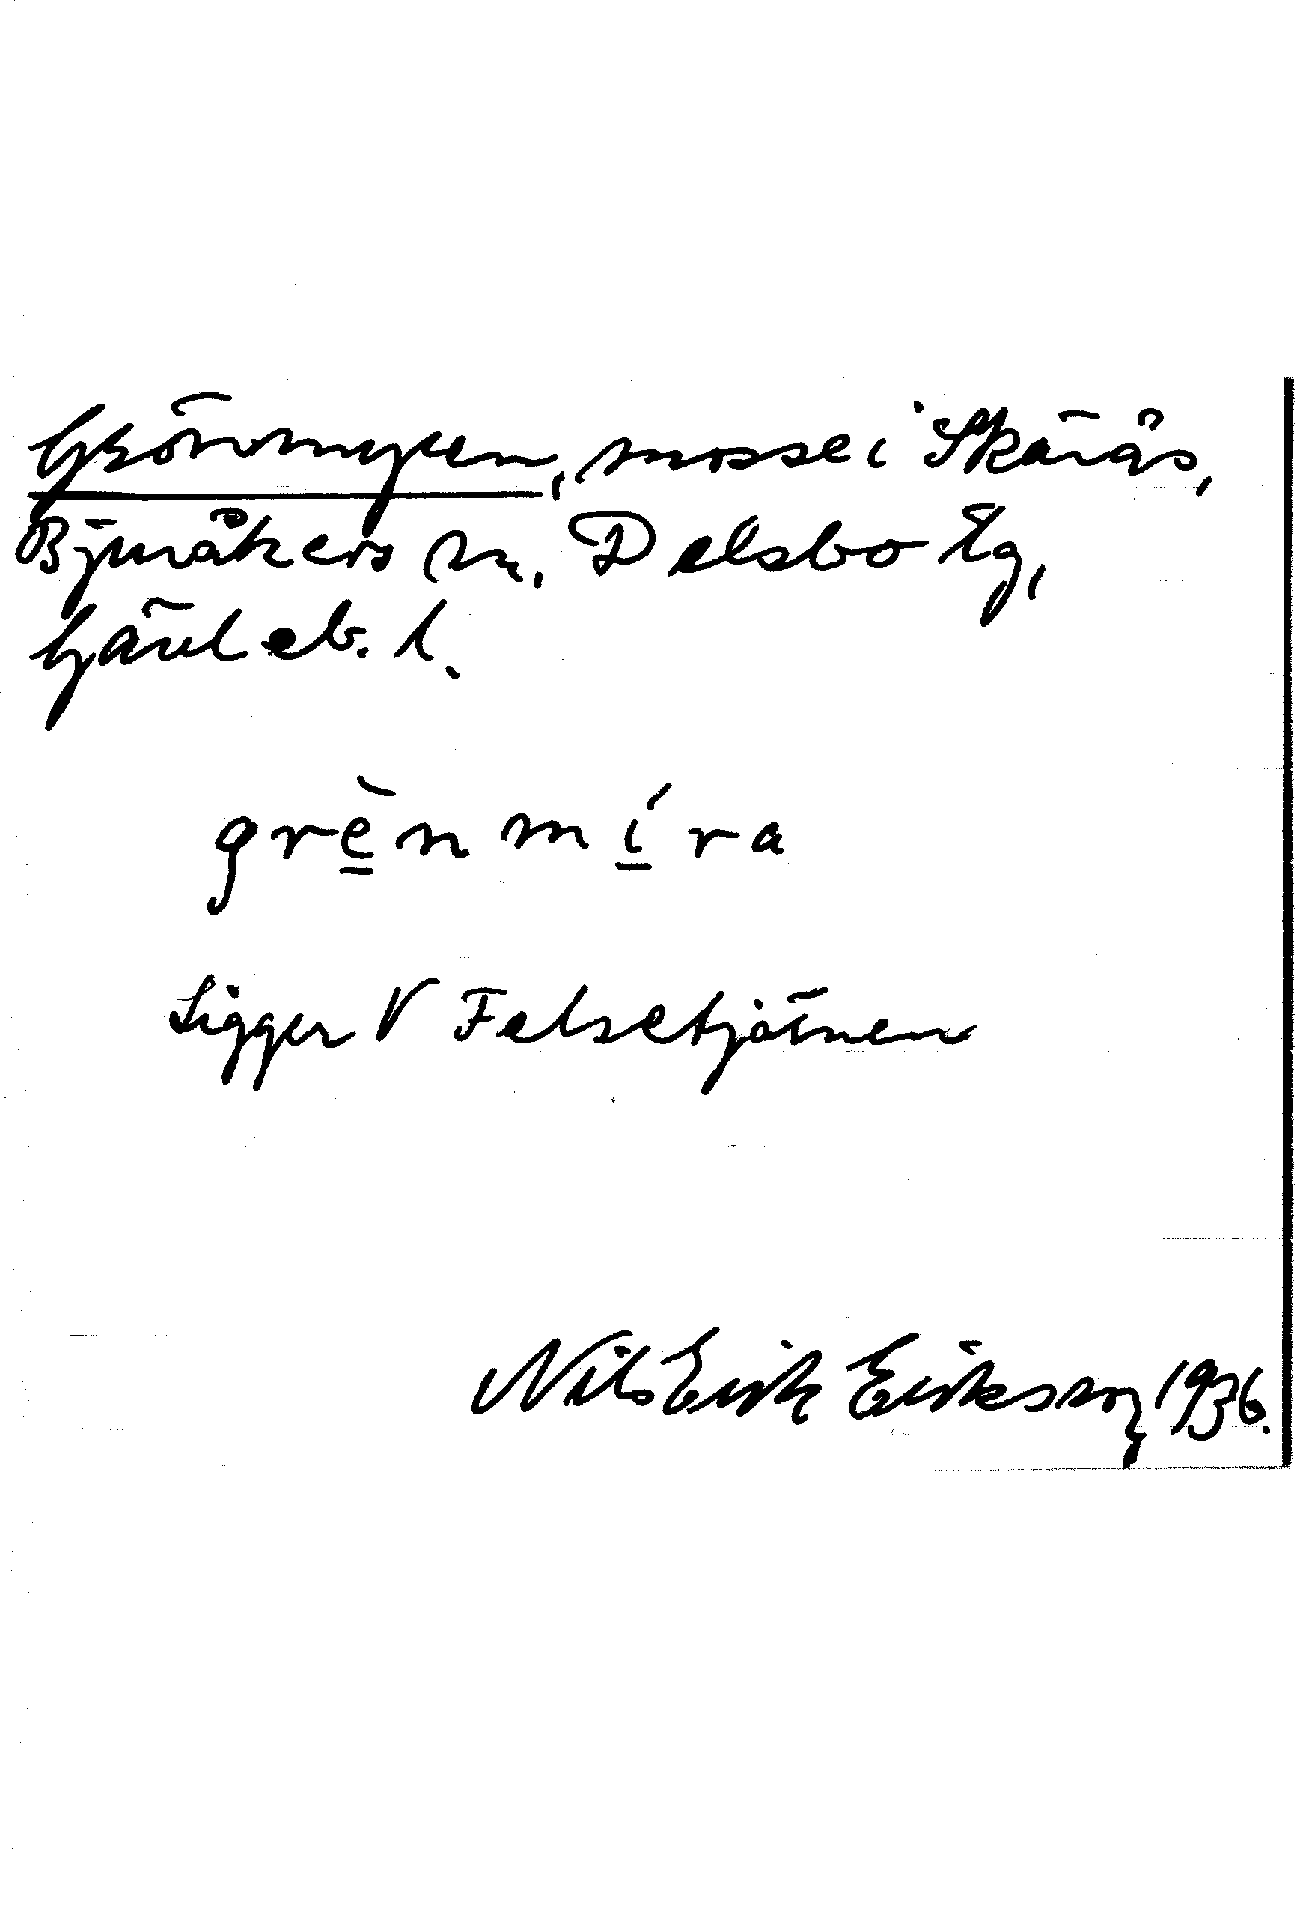 Grönmyren, mosse i Skärås,
Bjuråkers sn. Delsbo tg,
Gävleb. l.
grènmíra
Ligger V Felsetjärnen
Nils Erik Eriksson 1936.